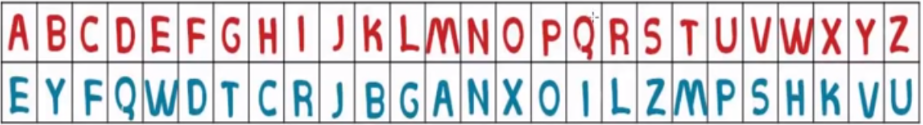 A B C D E F G H I J K L M N O P Q R S T U V W X Y Z
E Y F Q W D T C R J B G A N X O I L Z M P S H K V U